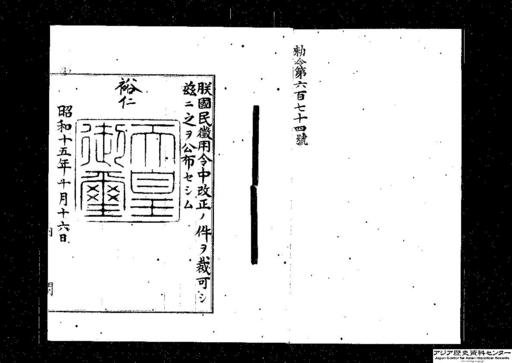 勅令第六百七十四號
朕國民徴用令中改正ノ件ヲ裁可シ
玆ニ之ヲ公布セシム
裕仁
天皇御璽
昭和十五年十月十六日
内閣
アジア歴史資料センター
Japan Center for Asian Historical Records